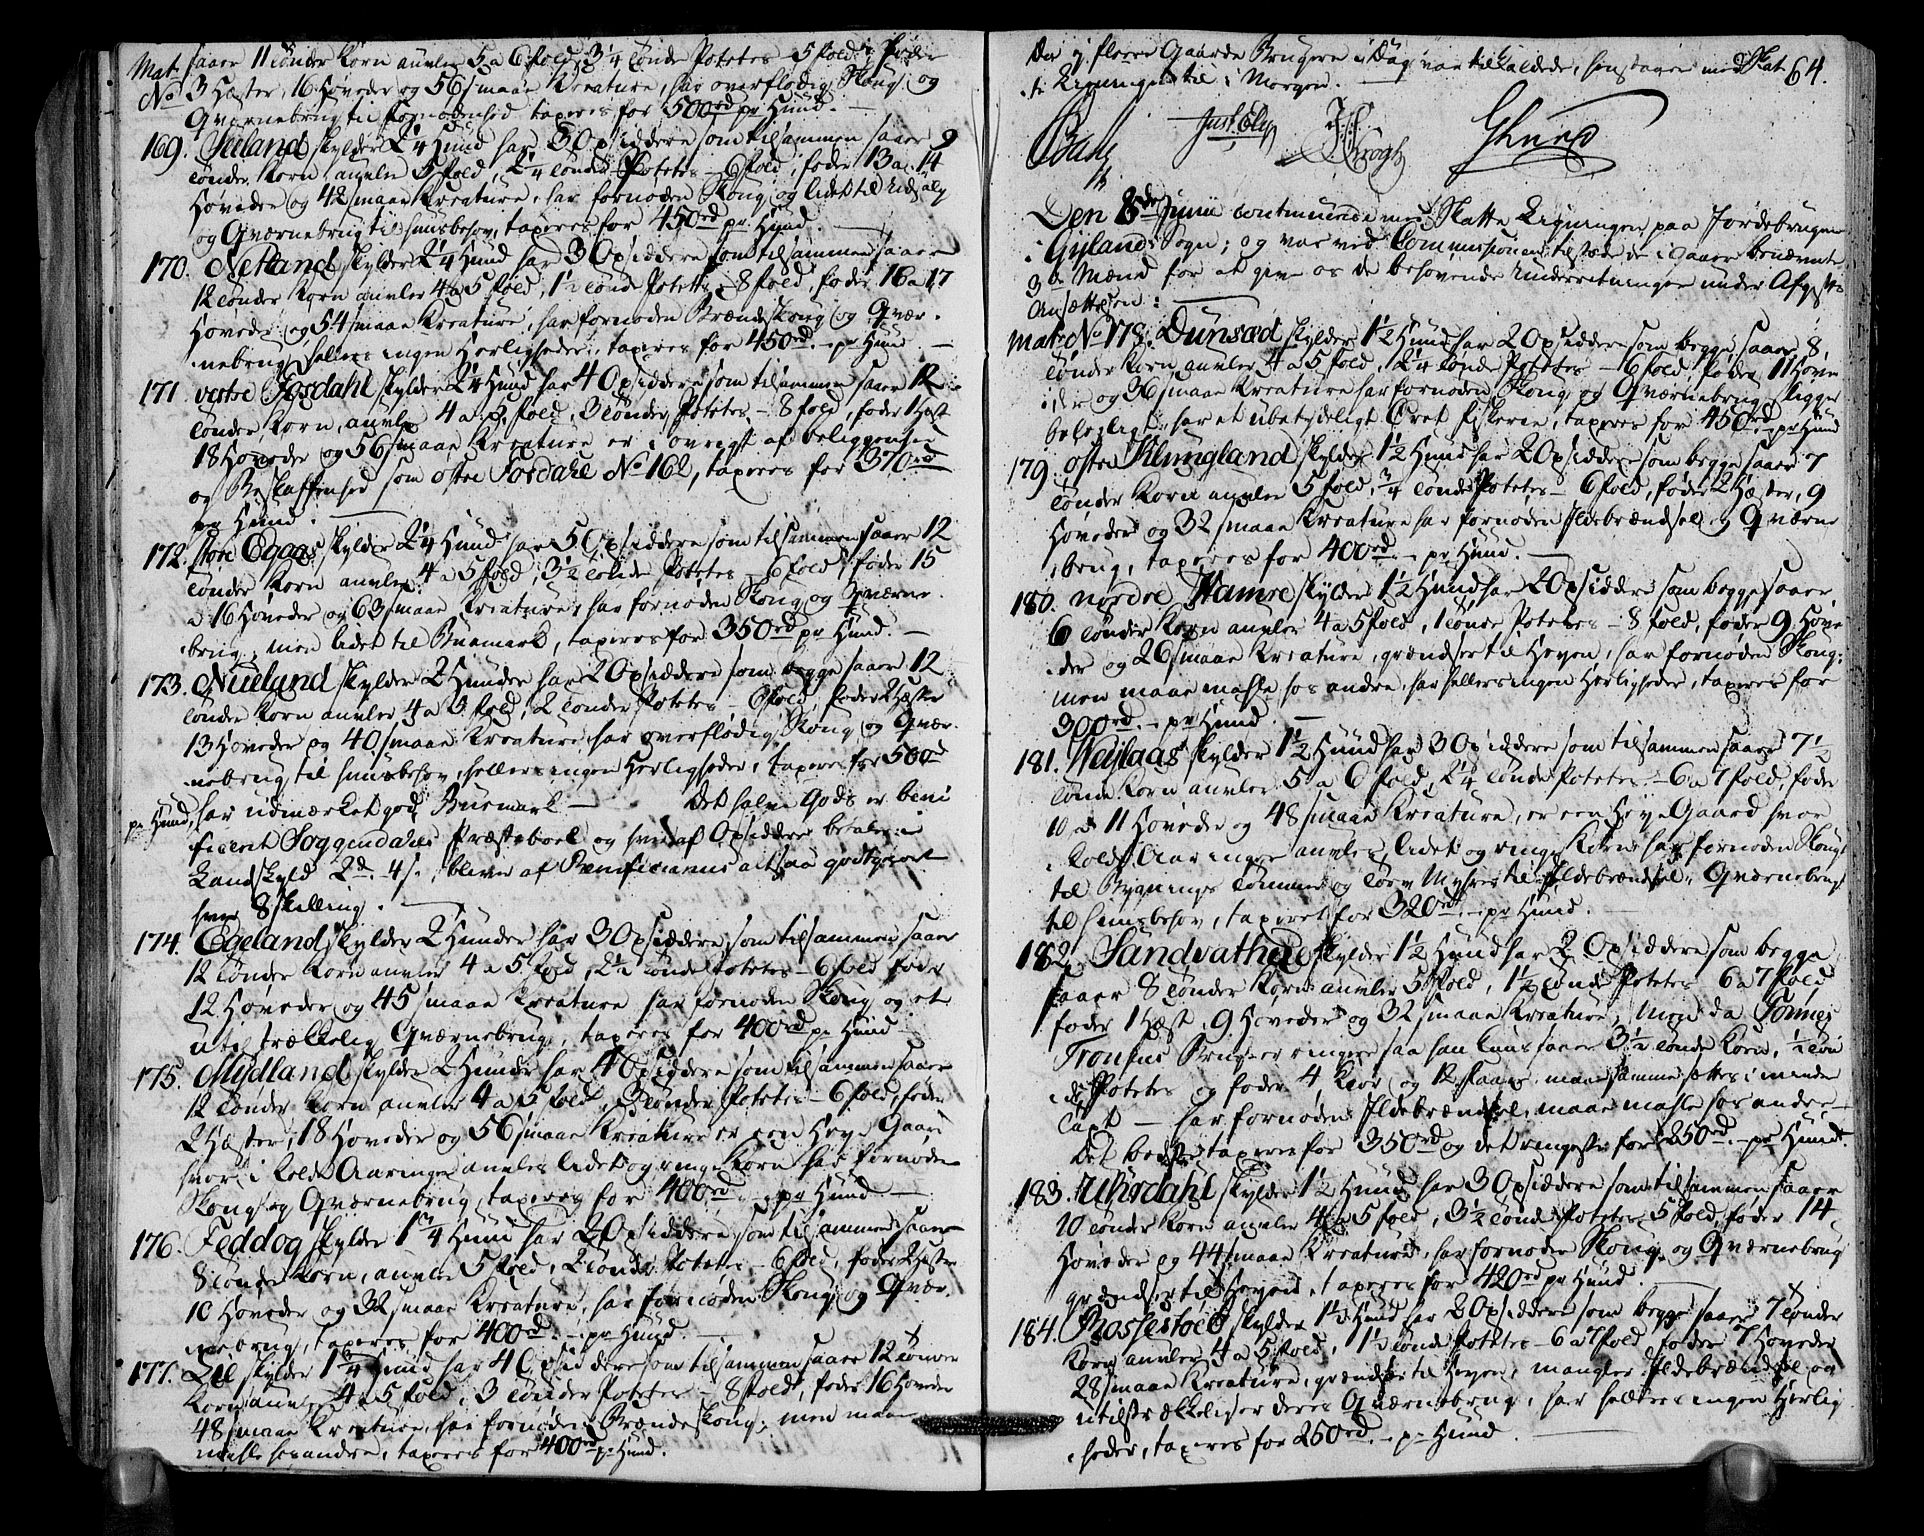 Mat saaer 11 tønder Korn auvler 5 a 6 fold, 3 1/4 tønde Potetes – 5 fold, føder
No 3 Hæster, 16 Høveder og 56 smaae Kreature, har overflødig Skoug og
Qværnebrug til fornødenhed taxeres for 500 rd pr Hund.
169. Iteland skylder 2 1/4 Hund har 3 Opsiddere som tilsammen saaer 9
tønder Korn auvler 5 fold, 2 1/4 tønde Potetes – 6 fold, føder 13 a 14
Høveder og 42 smaae Kreature, har fornøden Skoug og lidet til Udsalg
og Qværnebrug til huusbehov, taxeres for 450 rd pr Hund.
170. Netland skylder 2 1/4 Hund har 3 Opsiddere som tilsammen saaer
12 tønder Korn auvler 4 a 5 fold, 1 1/2 tønde Potetes – 8 fold, føder 16 a 17
Høveder og 54 smaae Kreature, har fornøden Brændeskoug og Qvær-
nebrug, hellers ingen Herligheder, taxeres for 450 rd. – pr Hund. –
171 vestre Josdahl skylder 2 1/4 Hund har 4 Opsiddere som tilsammen saaer 12
tønder Korn, auvler 4 a 5 fold, 3 tønder Potetes – 8 fold, føder 1 Hæst
18 Høveder og 56 smaae Kreature er i øvrigt af beliggenhed
og Beskaffenhed som østre Josdahl No 162, taxeres for 370 rd
pr Hund.
172. store Egaas skylder 2 1/4 Hund har 5 Opsiddere som tilsammen saaer 12
tønder Korn auvler 4 a 5 fold, 3 1/2 tønde Potetes – 6 fold, føder 15
a 16 Høveder og 63 smaae Kreature, har fornøden Skoug og Qværne-
brug, men lidet til Buemark, taxeres for 350 rd pr Hund. –
173. Nueland skylder 2 Hunder har 2 Opsiddere som begge saaer 12
tønder Korn auvler 4 a 5 fold, 2 tønder Potetes – 6 fold, føder 2 Hæster
13 Høveder og 40 smaae Kreature har overflødig Skoug og Qvær-
nebrug til huusbehov, hellers ingen Herligheder, taxeres for 500 rd
pr Hund, har udmærket god Buemark – Det halve Gods er beni
ficeret Soggendahls Præsteboel og hveraf Opsiddere betales i
Landskyld 2 d. 4 s., bliver af Beneficianus altsaa godtgjort
hver 8 Skilling.
174. Egeland skylder 2 Hunder har 3 Opsiddere, som tilsammen saaer
12 tønder Korn auvler 4 a 5 fold, 2 1/2 tønde Potetes – 6 fold føder
12 Høveder og 45 smaae Kreature har fornøden Skoug og et
utilstrækkelig Qværnebrug, taxeres for 400 rd pr Hund –
175. Mydland skylder 2 Hunder har 4 Opsiddere som tilsammen saaer
12 tønder Korn auvler 4 a 5 fold, 3 tønder Potetes – 6 fold, føder
2 Hæster, 18 Høveder og 56 smaae Kreature er een Heye Gaard
hvor i kolde Aaringer auvles lidet og ringe Korn har fornøden
Skoug og Qværnebrug, taxeres for 400 rd. – pr Hund –
176. Feddog skylder 1 3/4 Hund har 2 Opsiddere som tilsammen saaer
8 tønder Korn, auvler 5 fold, 2 tønder Potetes – 6 fold, føder 2 Hæster
10 Høveder og 32 smaae Kreature, har fornøden Skoug og Qvær-
nebrug, taxeres for 400 rd. – pr Hund.
177. Lil skylder 1 3/4 Hund har 4 Opsiddere som tilsammen saaer 12 tønder
Korn auvler 4 a 5 fold, 3 tønder Potetes – 8 fold, føder 16 Høveder
48 smaae Kreature, har fornøden Brændeskoug, men maae
mahle hos andre, taxeres for 400 rd pr Hund.
Da ej flere Gaards Brugere i Dag var tilkaldede, henstaaer med Skat- 64.
te Ligningen til i Morgen.
Bang Just Ely J: H: Krogh
Den 8de Junii continuerede med Skatte Ligningen paa Jordebrugene
i Gyland Sogn; og var ved Commissionen tilstæde de i gaar benævnte
3de Mænd for at give os de behøvende Underretninger under Afgifts
Ansættelsen:
Mat: No 178. Dunsæd skylder 1 1/2 Hund har 2 Opsiddere som begge saaer 8
tønder Korn auvler 4 a 5 fold, 2 1/4 tønde Potetes – 6 fold, føder 11 Høve-
der og 36 smaae Kreature har fornøden Skoug og Qværnebrug, ligger
beleyligt, har et ubetydeligt Øret fiskerie, taxeres for 450 rd. – pr Hund
179. østre Klungland skylder 1 1/2 Hund har 2 Opsiddere som begge saaer 7
tønder Korn auvler 5 fold, 3/4 tønde Potetes – 6 fold, føder 2 Hæster, 9
Høveder og 32 smaae Kreature har fornøden Ildebrændsel og Qværne
brug, taxeres for 400 rd. – pr Hund. –
180. nordre Hamre skylder 1 1/2 Hund har 2 Opsiddere som begge saaer
6 tønder Korn auvler 4 a 5 fold, 1 tønde Potetes – 8 fold, føder 9 Høve
der og 26 smaae Kreature, grændser til Heyen, har fornøden Skoug,
men maae mahle hos andre, har hellers ingen Herligheder, taxeres for
300 rd. – pr Hund. –
181. Nejlaas skylder 1 1/2 Hund har 3 Opsiddere som tilsammen saaer 7 1/2
tønde Korn auvler 5 a 6 fold, 2 1/4 tønde Potetes – 6 a 7 fold, føder
10 a 11 Høveder og 48 smaae Kreature, er een Heye Gaard hvor
i kolde Aaringer auvles lidet og ringe Korn har fornøden Skoug
til Bygnings tømmer og torv Myhrer til Ildebrændsel, Qværnebrug
til huusbehov, taxeret for 320 rd. – pr Hund.
182. Sandvathne skylder 1 1/2 Hund har 2 Opsiddere som begge
saaer 8 tønder Korn auvler 5 fold, 1 1/2 tønde Potetes 6 a 7 fold
føder 1 Hæst, 9 Høveder og 32 smaae Kreature, men da Tønnes
Tronsens Brug er ringere saa han kuns saaer 3 1/2 tønde Korn, 1/2 tøn-
de Potetes og føder 4 Kiør og 12 faar, maae samme sættes i mindre
Taxt – har fornøden Ildebrændsel, maae mahle hos andre –
Det bedste taxeres for 350 rd og det ringeste for 250 rd. – pr Hund.
183. Uhrdahl skylder 1 1/2 Hund har 3 Opsiddere som tilsammen saaer
10 tønder Korn auvler 4 a 5 fold, 3 1/2 tønde Potetes 5 fold, føder 14
Høveder og 44 smaae Kreature, har fornøden Skoug og Qværnebrug
grændser til Heyen, taxeres for 420 rd pr Hund.
184. Rossestøel skylder 1 1/2 Hund har 2 Opsiddere som begge saaer 7 tønder
Korn auvler 4 a 5 fold, 1 1/2 tønde Potetes – 6 a 7 fold føder 7 Høveder
28 smaae Kreature, grændser til Heyen, mangler Ildebrændsel og
utilstrækkelig er deres Qværnebrug, har hellers ingen Herlig-
heder, taxeres for 250 rd. – pr Hund.